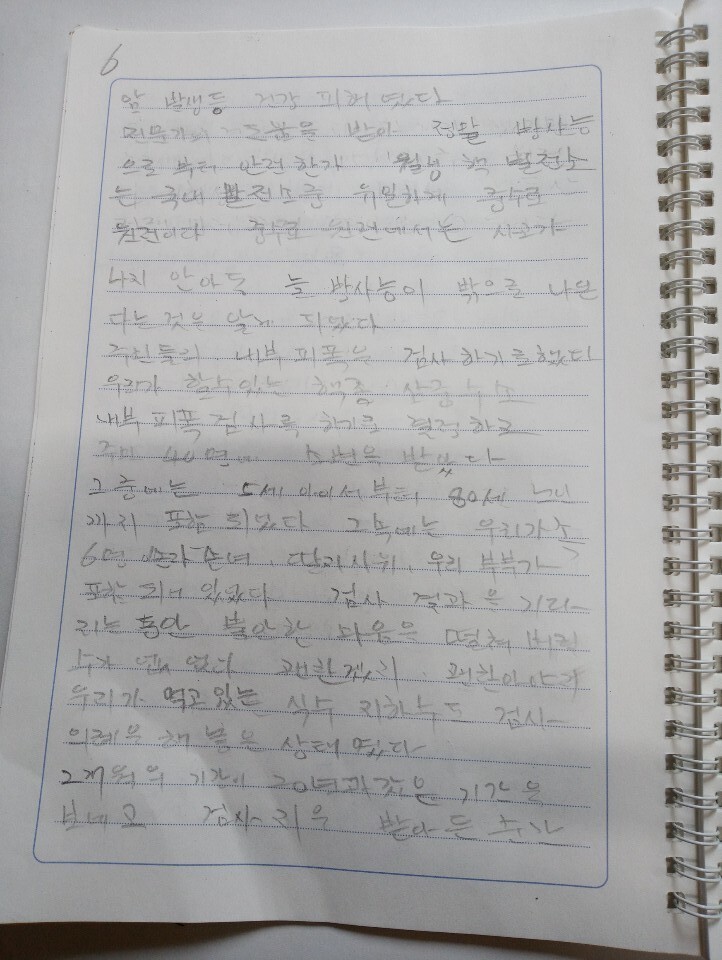 6
암 발생등 건강 피해 였다
전문가의 도움을 받아 정말 방사능
으로 부터 안전한가 월성 핵 발전소
는 국내 발전소중 유일하게 중수로
원전이다 중수로 원전에서는 사고가
나지 안아도 늘 방사능이 밖으로 나온
다는 것은 알게 되었다
주민들의 내부 피폭을 검사 하기로 했다
우리가 할수 있는 핵종 삼중수소
내부 피폭 검사를 하기로 결정 하고
주민 40명의 소변을 받았다
그 중에는 5세 아이서부터 80세 노인
까지 포함 되었다 그속에는 우리가족
6명 손자 손녀, 딸과 사위, 우리 부부가
포함 되어 있었다 검사 결과 을 기다
리는 동안 불안한 마음을 떨쳐 버릴
수가 없었다 괜찬겠지
우리가 먹고 있는 식수 지하수도 검사
의뢰을 해 놓은 상태 였다
2개월의 기간이 20년과 같은 기간을
보내고 검사 받아 든 순간